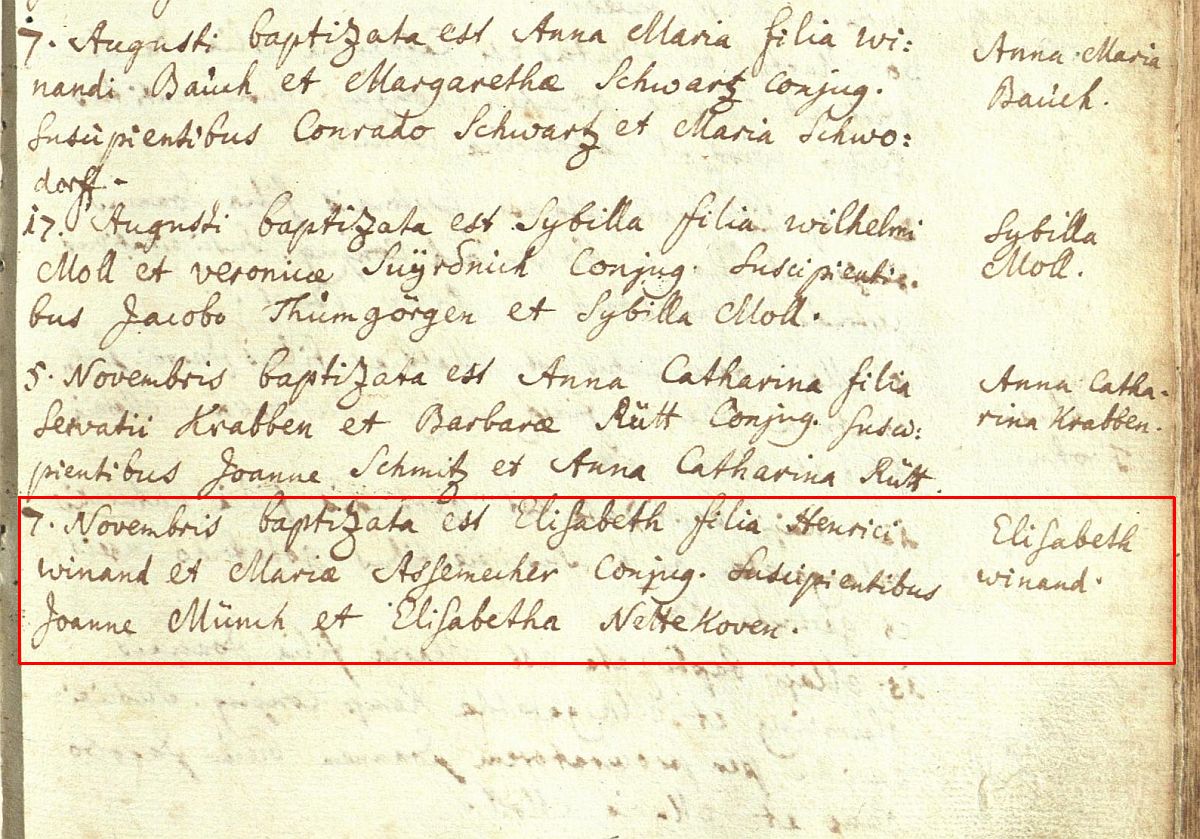 7. Augusti baptizata est Anna Maria filia wi:
nandi Baüch et Margarethæ Schwartz conjug.
Suscipientibus Conrado Schwartz et Maria Schwo:
dorff.
Anna Maria
Baüch.
17. Augusti baptizata est Sybilla filia wilhelmi
Moll et veronicæ Conjug. Suscipienti:
bus Jacobo Thümgörgen et Sybilla Moll.
Sybilla
Moll.
5. Novembris baptizata est Anna Catharina filia
Servatii Krabben et Barbaræ Rütt Conjug. Susci:
pientibus Joanne Schmitz et Anna Catharina Rütt.
Anna Catha-
rina Krabben.
7. Novembris baptizata est Elisabeth filia Henrici
winand et Mariæ Assemecher Conjug. Suscipientibus
Joanne Münch et Elisabetha Nettekoven.
Elisabeth
winand.